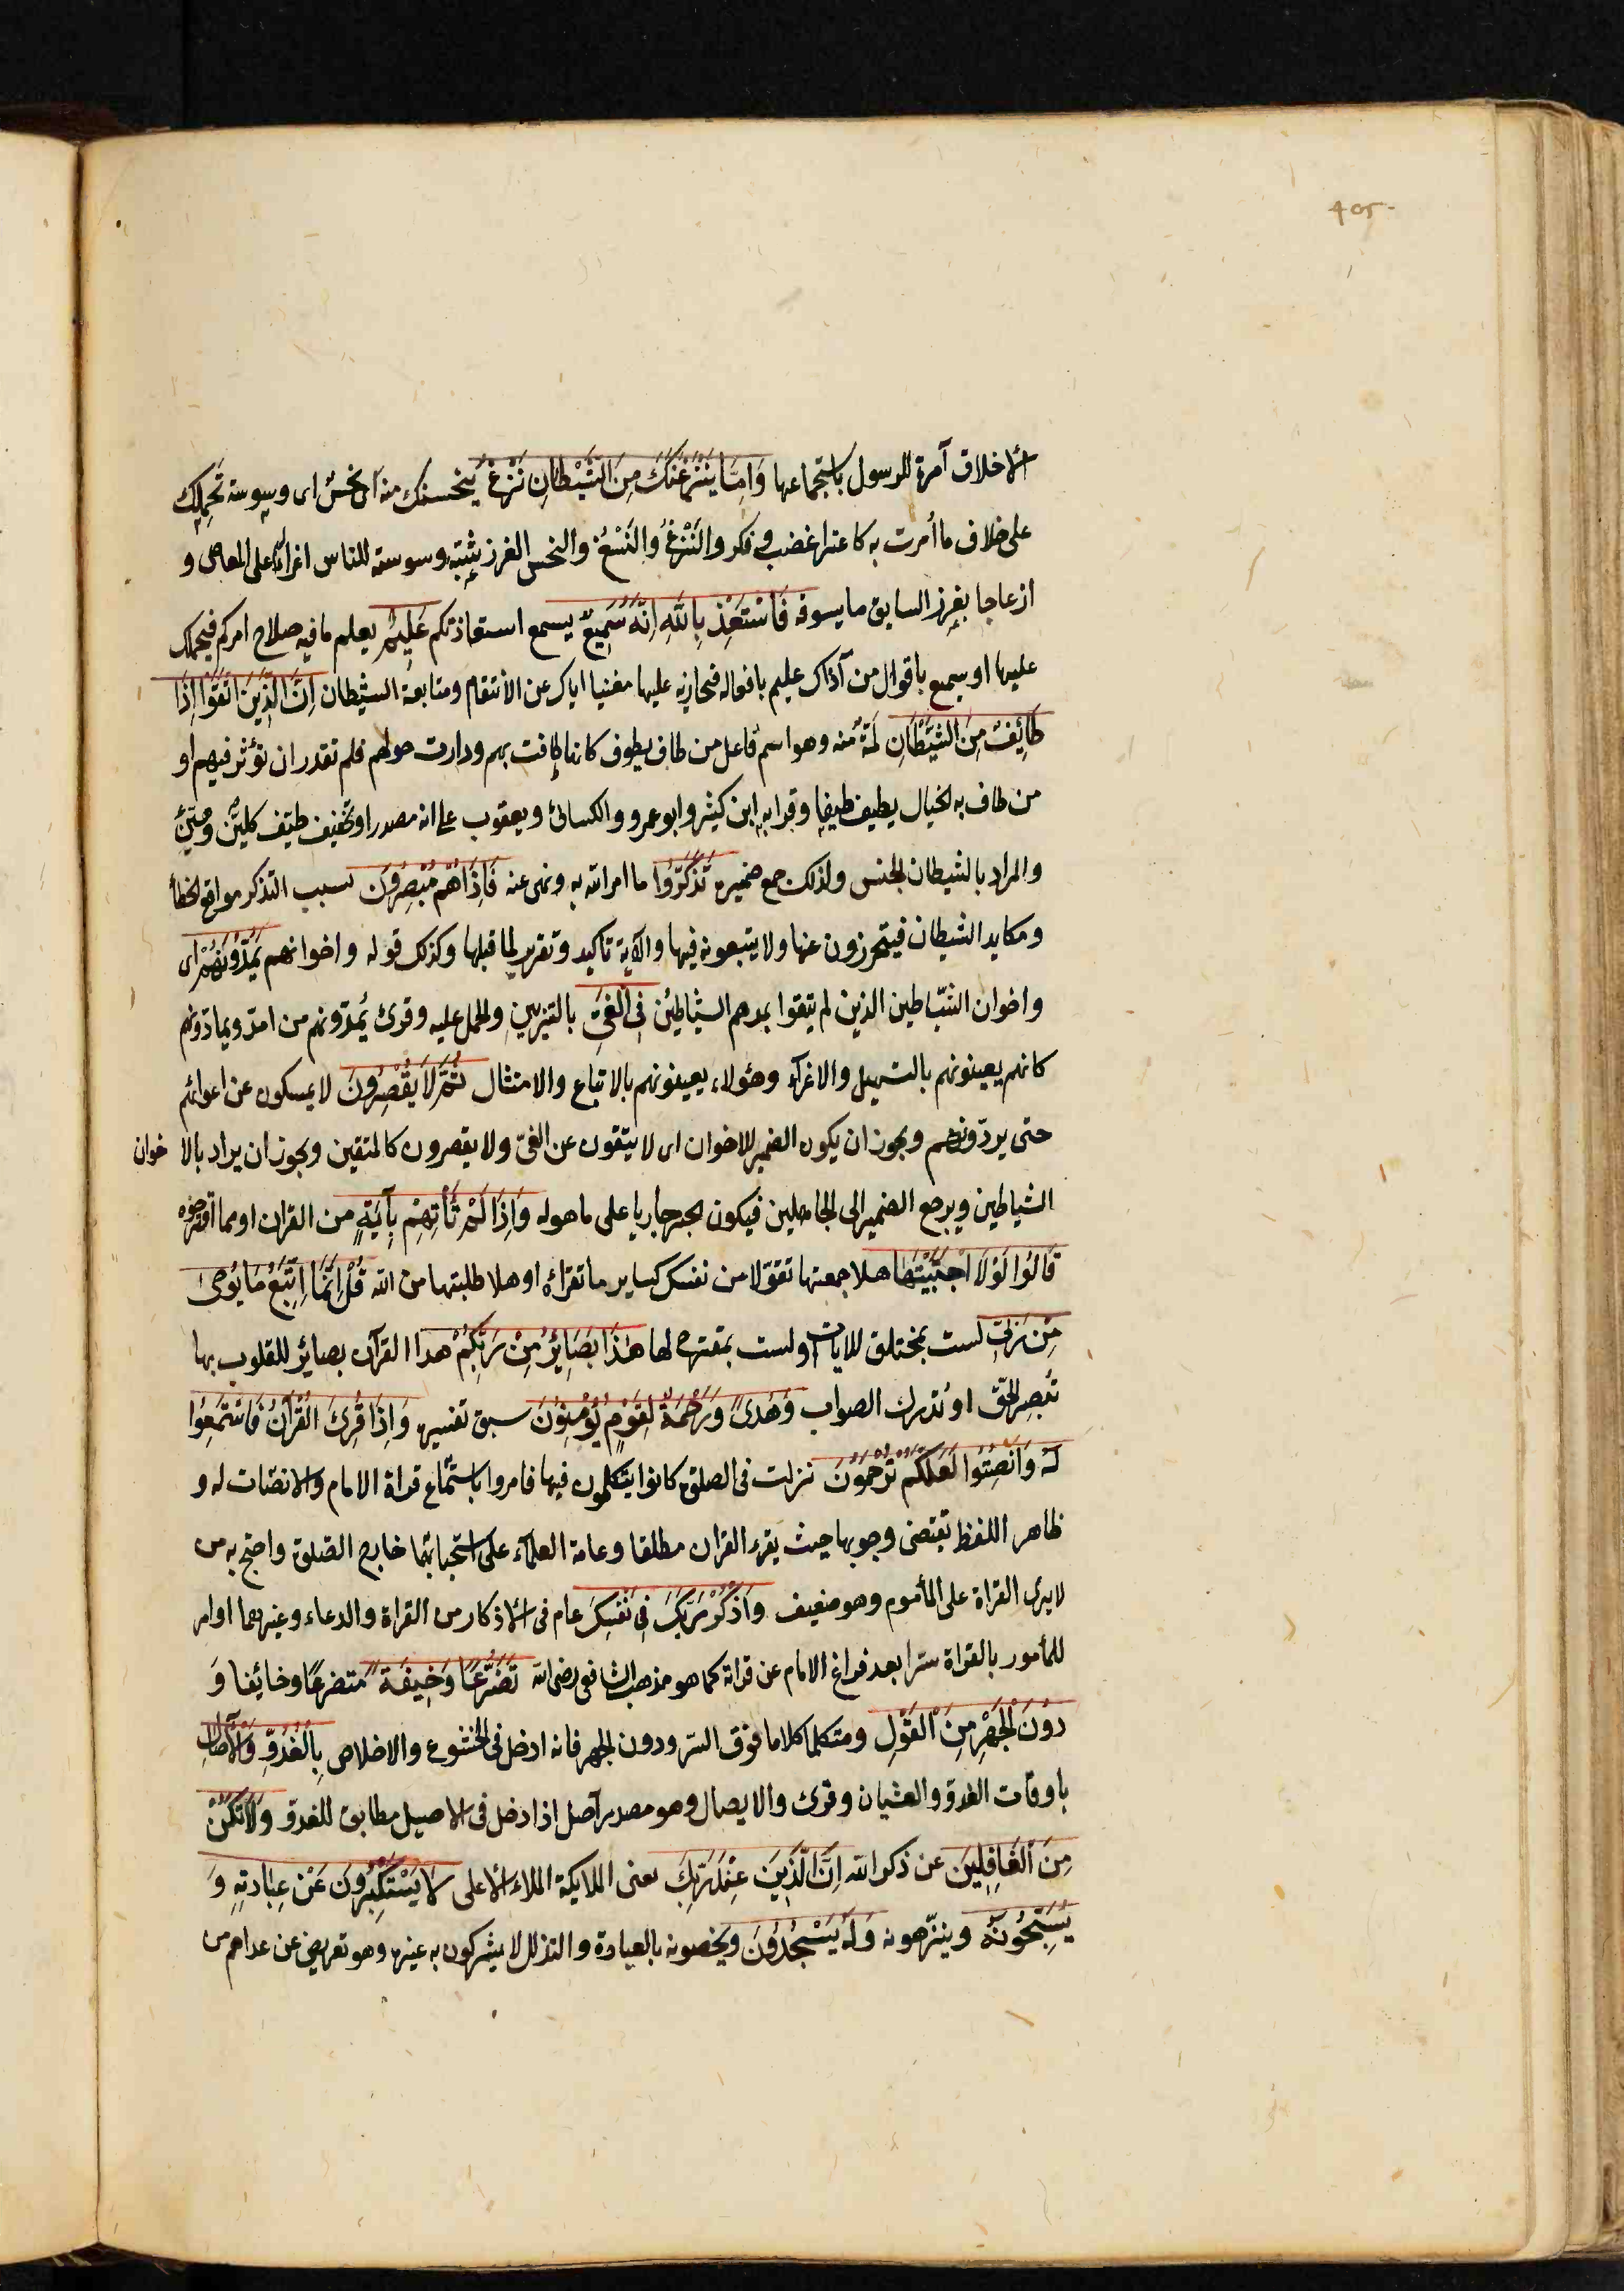 405
الاخلاق آمرة للرسول باستجماعها وَاِمَّا يَنْزَغَنَّكَ مِنَ الشَّيْطَانِ نَزْغٌ ينخسنك منه اى نخس اى وسوسة تحملك
على خلاف ما أمرت به كاعتراء غضب وفكر والنَزْغُ وَالنَسْغُ والنخس الغرز شبّه وسوسته للناس اغراءً على المعاصى و
ازعاجا بغرز السايق ما يسوقه فَاسْتَعِذْ بِاللّٰهِ اِنَّهُ سَمِيعٌ يسمع استعاذتكم عَلِيمٌ يعلم ما فيه صلاح امركم فيحملك
عليها او سميع باقوال من آذاك عليم بافعاله فيجازيه عليها مغنيا اياك عن الانتقام ومتابعة الشيطان اِنَّ الَّذِينَ اتَّقَوْا اِذَا
طَائِفٌ مِنَ الشَّيْطَانِ لَمَّةٌ منه وهو اسم فاعل من طاف يطوف كانها طافت بهم ودارت حولهم فلم تقدر ان تؤثر فيهم او
من طاف به الخيال يطيف طيفا وقرا به ابن كثير وابو عمرو والكسائى ويعقوب على انه مصدر او تخفيف طيّف كليّن وهيّن
والمراد بالشيطان الجنس ولذلك جمع ضميره تَذَكَّرُوا ما امر الله به ونهى عنه فَاِذَا هُمْ مُبْصِرُونَ بسبب التذكر مواقع الخطأ
ومكايد الشيطان فيتحرزون عنها ولا يتبعونه فيها والآية تاكيد وتقرير لما قبلها وكذلك قوله واخوانهم يَمُدُّونَهُمْ اى
واخوان الشياطين الذين لم يتقوا يمدهم الشياطين فِى الْغَىِّ بالتزيين والحمل عليه وقرئ يُمدّونهم من امدّ ويمادّونهم
كانهم يعينونهم بالتسهيل والاغراء وهؤلاء يعينونهم بالاتباع والامتثال ثُمَّ لَا يُقْصِرُونَ لا يمسكون عن اغوائهم
حتى يردّونهم ويجوز ان يكون الضمير للاخوان اى لا يتقون عن الغىّ ولا يقصرون كالمتقين ويجوز ان يراد بالا خوان
الشياطين ويرجع الضمير الى الجاهلين فيكون الخبر جاريا على ما هو له وَاِذَا لَمْ تَأْتِهِمْ بِآيَةٍ من القران او مما اقترحوه
قَالُوا لَوْلَا اجْتَبَيْتَهَا هلا جمعتها تقوّلا من نفسك كساير ما تقرأه او هلا طلبتها من الله قُلْ اِنَّمَا اَتَّبِعُ مَا يُوحٰى
مِنْ رَبِّى لست بمختلق للايات او لست بمقترح لها هٰذَا بَصَائِرُ مِنْ رَبِّكُمْ هذا القرآن بصائر للقلوب بها
تُبصِر الحق او تُدرك الصواب وَهُدىً وَرَحْمَةٌ لِقَوْمٍ يُؤْمِنُونَ سبق تفسيره وَاِذَا قُرِئَ الْقُرْآنُ فَاسْتَمِعُوا
لَهُ وَاَنْصِتُوا لَعَلَّكُمْ تُرْحَمُونَ نزلت فى الصلوة كانوا يتكلمون فيها فامروا باستماع قراة الامام والانصات له و
ظاهر اللفظ يقتضى وجوبها حيث يقرء القران مطلقا وعامة العلماء على استحبابهما خارج الصلوة واحتج به من
لا يرى القراة على المأموم وهو ضعيف وَاذْكُرْ رَبَّكَ فِى نَفْسِكَ عام فى الاذكار من القراة والدعاء وغيرهما او امر
للمأمور بالقراة سرا بعد فراغ الامام عن قراته كما هو مذهب الشافعى رضى الله تَضَرُّعًا وَخِيفَةً متضرعًا وخائفا وَ
دُونَ الْجَهْرِ مِنَ الْقَوْلِ ومتكلما كلاما فوق السرّ ودون الجهر فانه ادخل فى الخشوع والاخلاص بِالْغُدُوِّ وَالْآصَالِ
باوقات الغدوّ والعشيان وقرئ والايصال وهو مصدر آصل اذا دخل فى الاصيل مطابق للغدوّ وَلَا تَكُنْ
مِنَ الْغَافِلِينَ عن ذكر الله اِنَّ الَّذِينَ عِنْدَ رَبِّكَ يعنى الملايكة الملاء الاعلى لَا يَسْتَكْبِرُونَ عَنْ عِبَادَتِهِ وَ
يُسَبِّحُونَهُ وينزّهونه وَلَهُ يَسْجُدُونَ ويخصونه بالعبادة والتذلل لا يشركون به غيره وهو تعريض عن عداهم من